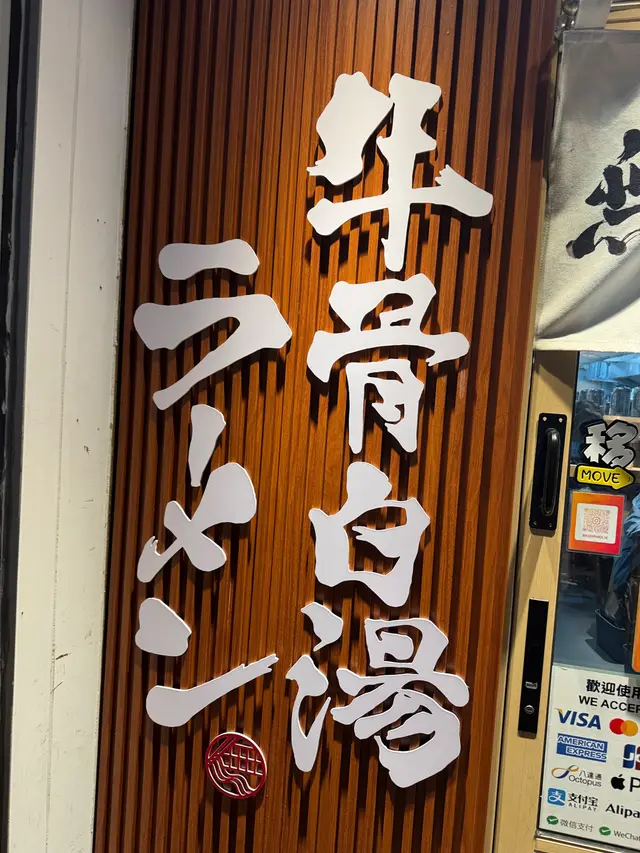 牛骨白湯
ラーメン
移
MOVE
歡迎使用
WE ACCEP
VISA
AMERICAN
EXPRESS
八達通
Octopus
支付宝
ALIPAY
Alipa
微信支付
WeCha